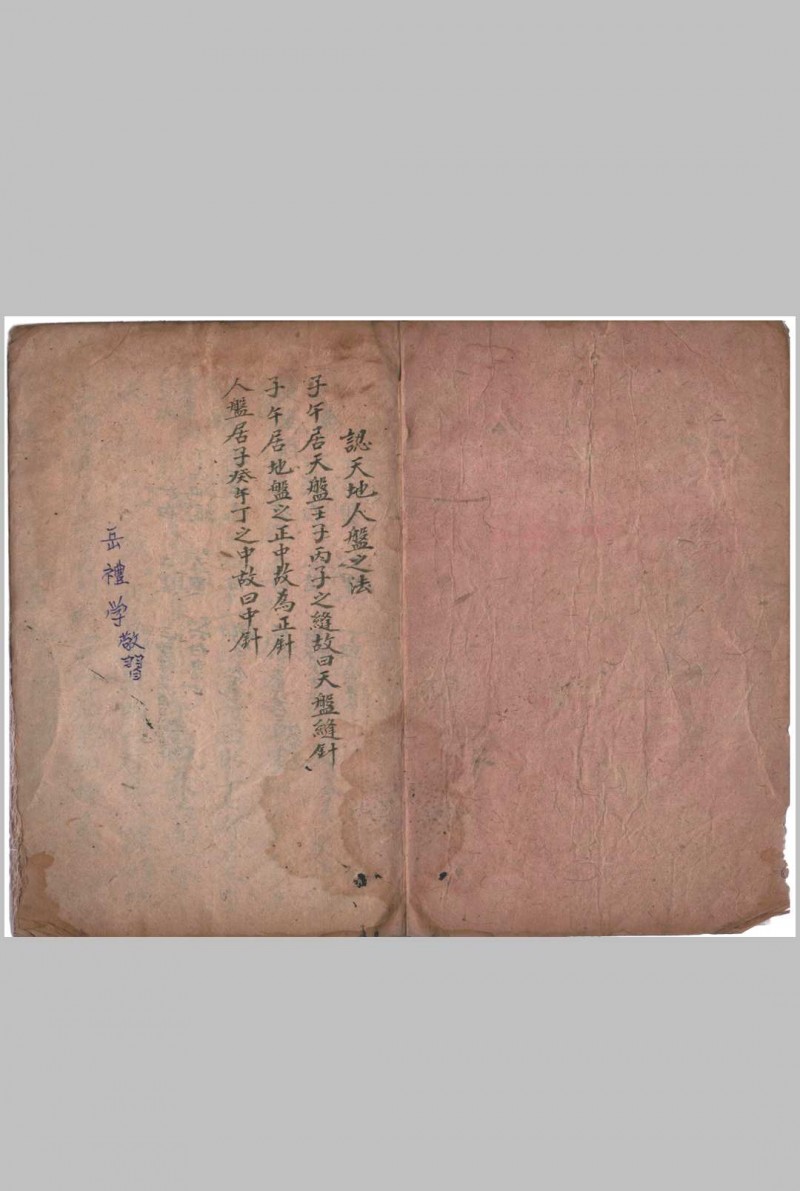 認天地人盤之法
子午居天盤壬子丙子之縫故曰天盤縫針
子午居地盤之正中故為正針
人盤居子癸午丁之中故曰中針
岳禮学敬習